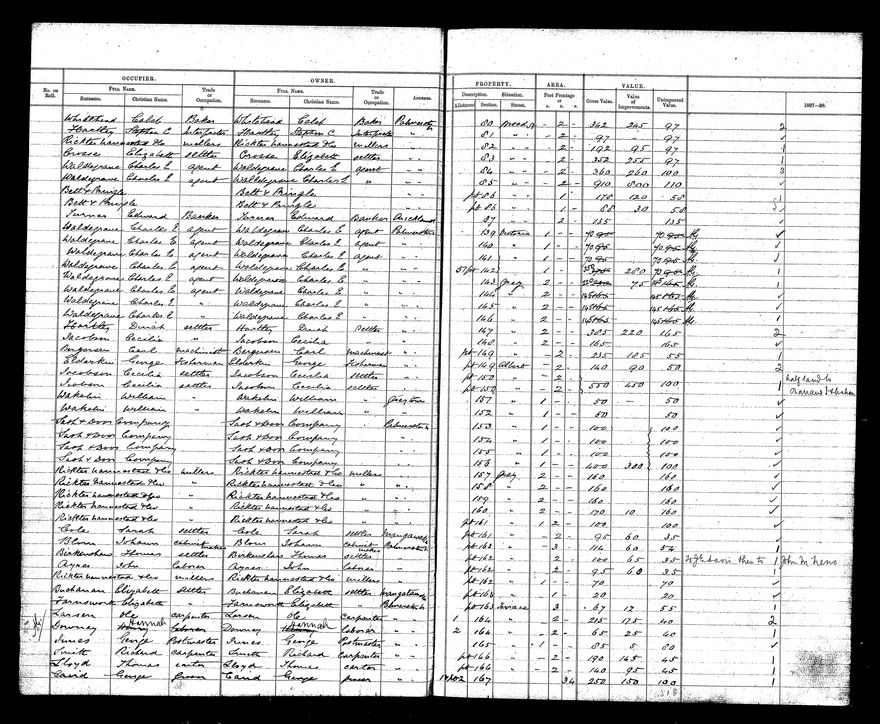 OCCUPIER. OWNER. PROPERTY. AREA. VALUE.
No. on Roll. Full Name. Trade or Occupation. Full Name. Trade or Occupation. Address. Description. Situation. Feet Frontage or Gross Value. Value of Improvements. Unimproved Value. 1897-98.
Surname. Christian Name. Surname. Christian Name. Allotment Section. Street. a. r. p.
Whitehead Caleb Baker Whitehead Caleb Baker 80 - 2 - 342 245 97 2
Hartley Stephen C Interpreter Hartley Stephen C Interpreter " 81 " - 2 - 97 - 97
Richter Nannestad & Co millers Richter Nannestad & Co millers " 82 " - 2 - 192 95 97 1
Crosse Elizabeth settler Crosse Elizabeth settler " 83 " - 2 - 352 255 97 1
Waldegrave Charles E agent Waldegrave Charles E agent " 84 " - 2 - 360 260 100 3
Waldegrave Charles E agent Waldegrave Charles E " 85 " - 2 - 910 800 110
Bett & Pringle Bett & Pringle pt 86 " 1 178 120 58
Bett & Pringle Bett & Pringle pt 86 " 88 30 58
Turner Edward Banker Turner Edward Banker Auckland 87 " 2 135 135
Waldegrave Charles E agent Waldegrave Charles E agent Palmerston 139 Victoria 1 - - 70
Waldegrave Charles E agent Waldegrave Charles E agent " 140 " 1 - - 70
Waldegrave Charles E agent Waldegrave Charles E agent " 141 " 1 - - 70
Waldegrave Charles E agent Waldegrave Charles E " pt 142 " 1 - - 280 70 1
Waldegrave Charles E agent Waldegrave Charles E " 143 Grey 2 - - 75 1
Waldegrave Charles E agent Waldegrave Charles E " 144 " 2 - - 145
Waldegrave Charles E " Waldegrave Charles E " 145 " 2 - - 145
Waldegrave Charles E " Waldegrave Charles E " 146 " 2 - - 145 1
Hartley settler Hartley settler " 147 " 2 - - 385 220 165 2
Jacobson Cecilia " Jacobson Cecilia " 148 " 2 - - 165 165
Bergersen Carl machinist Bergersen Carl machinist pt 149 " - 2 - 235 185 55 1
Elderkin George Elderkin George pt 149 Albert - 2 - 140 90 50 2
Jacobson Cecilia settler Jacobson Cecilia settler pt 150 " - 2 -
Jacobson Cecilia settler Jacobson Cecilia settler pt 150 " - 2 - 550 450 100 1 half land to
Wakelin William " Wakelin William " Greytown 151 " 1 - - 50 - 50
Wakelin William Wakelin William " " 152 " 1 - - 50 50
Sash & Door Company Sash & Door Company Palmerston 153 " 1 - - 100 100
Sash & Door Company Sash & Door Company 154 " 1 - - 100 100
Sash & Door Company Sash & Door Company 155 " 1 - - 100 100
Sash & Door Company Sash & Door Company 156 " 1 - - 400 300 100
Richter Nannestad & Co millers Richter Nannestad & Co millers 157 Grey 2 - - 160 160
Richter Nannestad & Co " Richter Nannestad & Co " 158 " 2 - - 160 160
Richter Nannestad & Co " Richter Nannestad & Co " 159 " 2 - - 160 160
Richter Nannestad & Co " Richter Nannestad & Co " 160 " 2 - - 170 10 160
Richter Nannestad & Co " Richter Nannestad & Co " pt 161 " 1 2 - 100 100
Cole Sarah settler Cole Sarah settler Wanganui pt 161 " - 2 - 95 60 35
Blom Johann Blom Johann Palmerston pt 162 " - 3 - 114 60 54 1
Birkenshaw Thomas settler Birkenshaw Thomas settler " pt 162 " - 2 - 100 65 35 1
Ayres John laborer Ayres John laborer " pt 162 " - 2 - 95 60 35 1
Richter Nannestad & Co millers Richter Nannestad & Co millers " pt 162 " 1 - - 70 70
Buchanan Elizabeth settler Buchanan Elizabeth settler pt 163 " 1 20 20
Farnsworth Elizabeth " Farnsworth Elizabeth " Palmerston pt 163 Terrace 3 67 12 55 1
Larsen Ole carpenter Larsen Ole carpenter " 1 164 " - 2 - 215 175 40 2
Downey Hannah laborer Downey Hannah laborer " 2 164 " - 2 - 65 25 40 1
Innes George Postmaster Innes George Postmaster " 165 " 1 - - 85 5 80
Smith Richard carpenter Smith Richard carpenter " pt 166 " - 2 - 190 145 45 1
Lloyd Thomas carter Lloyd Thomas carter " pt 166 " - 2 - 140 95 45 1
Caird George Caird George " 167 " 34 250 150 100 1